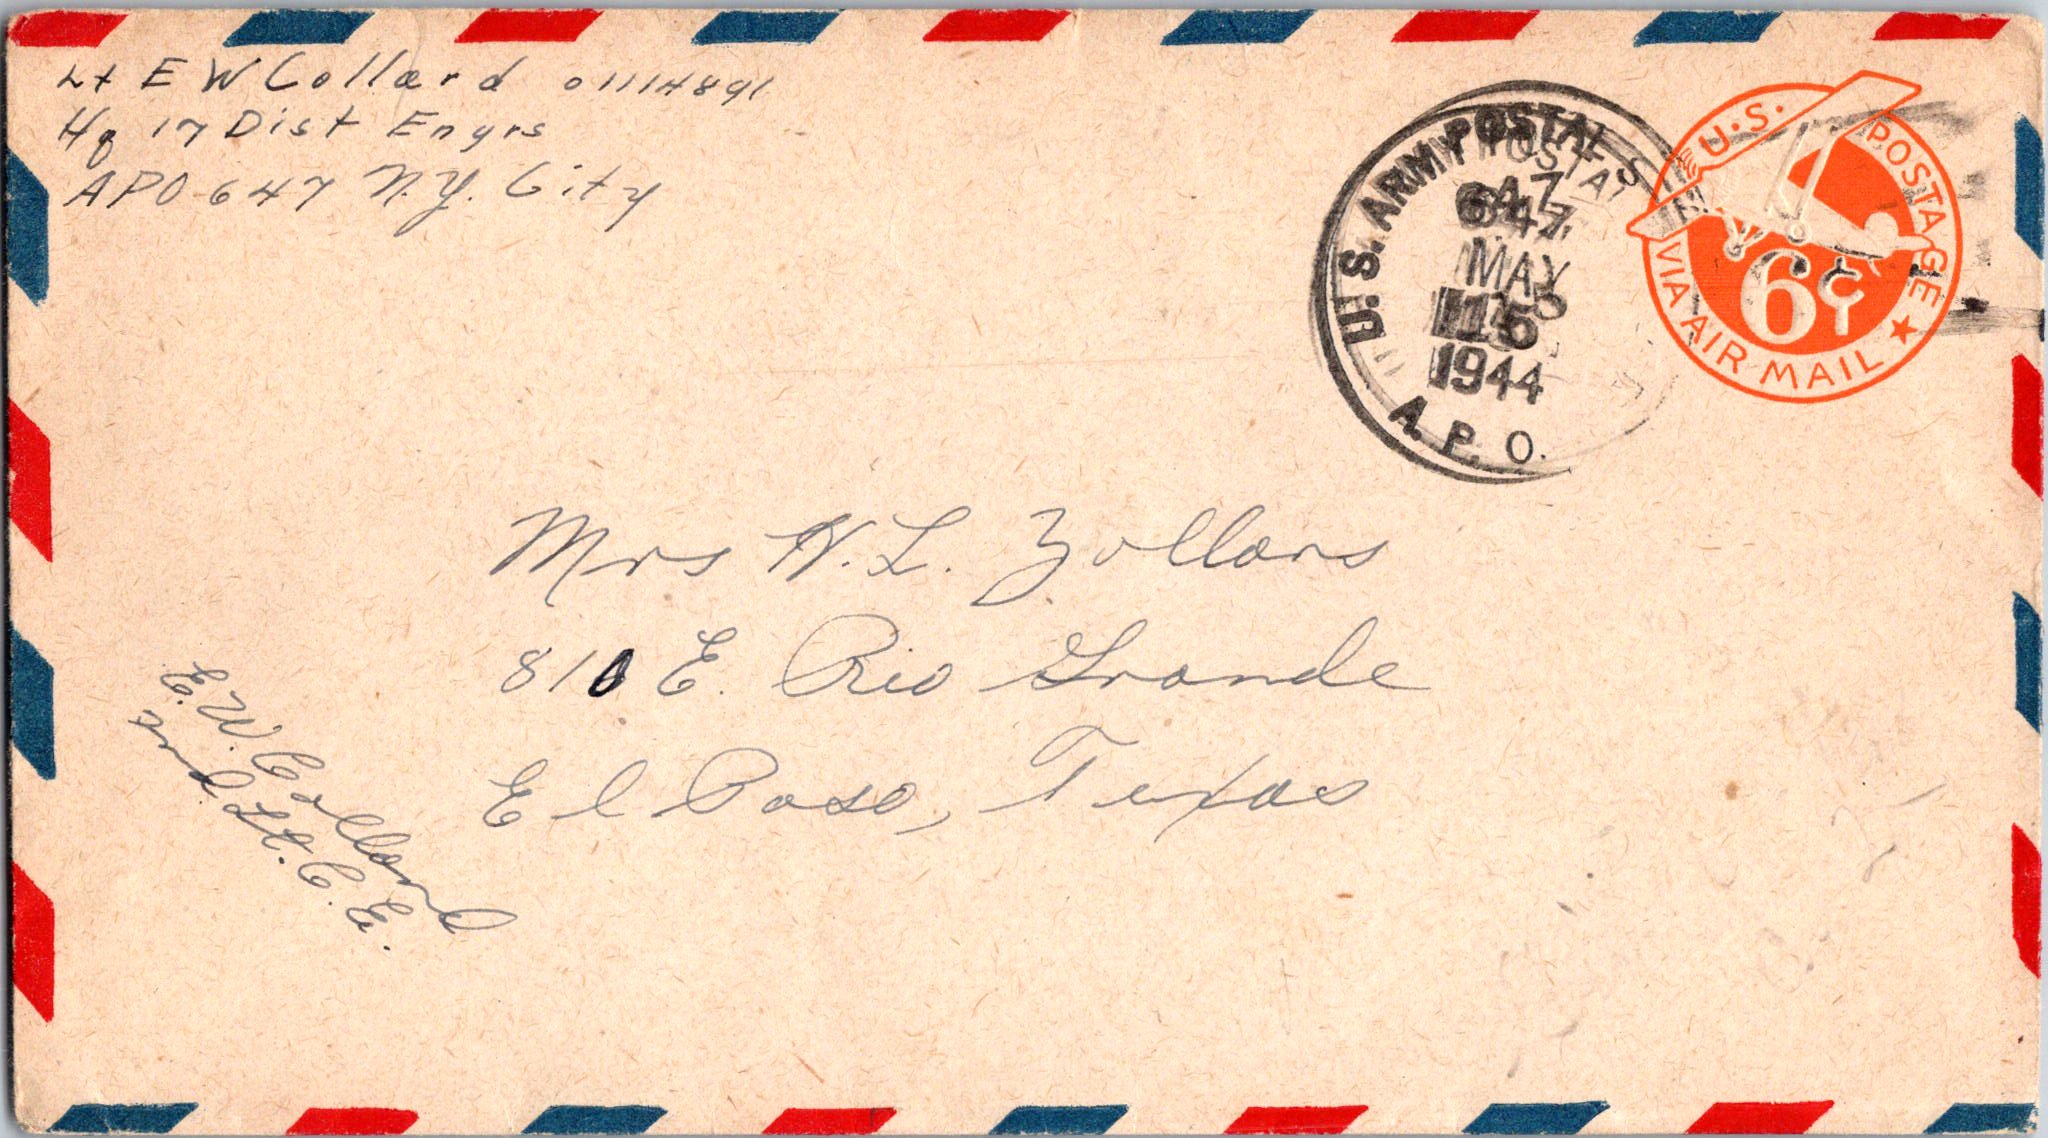 Lt E W Collard 01114891
Hq 17 Dist Engrs
APO 647 N.Y. City
U.S. ARMY POSTAL S
647
MAY
15
1944
A.P.O.
U.S. POSTAGE
6¢
VIA AIR MAIL
Mrs H. L. Zollars
810 E. Rio Grande
El Paso, Texas
E. W. Collard
2nd Lt. C. E.